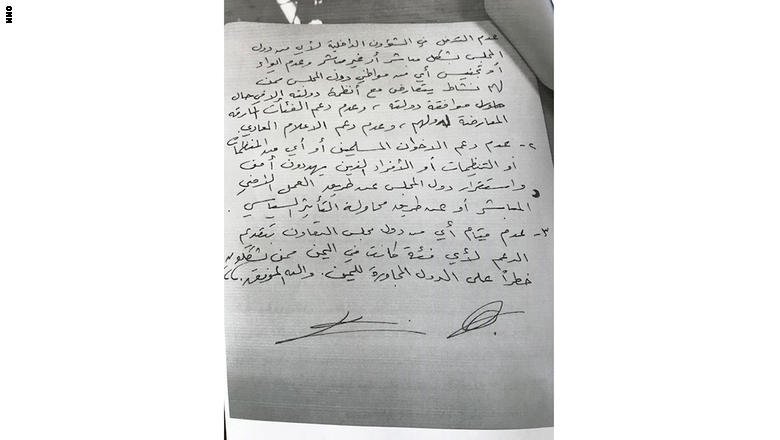 عدم التدخل في الشؤون الداخلية لأي من دول
المجلس بشكل مباشر أو غير مباشر وعدم إيواء
أو تجنيس أي من مواطني دول المجلس ممن
لهم نشاط يتعارض مع أنظمة دولته إلا في حال
موافقة دولته ، وعدم دعم الفئات المارقة
المعارضة لدولهم ، وعدم دعم الاعلام المعادي
٢- عدم دعم الاخوان المسلمين أو أي من المنظمات
أو التنظيمات أو الأفراد الذين يهددون أمن
واستقرار دول المجلس عن طريق العمل الأمني
المباشر أو عن طريق محاولة التأثير السياسي .
٣- عدم قيام أي من دول مجلس التعاون بتقديم
الدعم لأي فئة كانت في اليمن ممن يشكلون
خطراً على الدول المجاورة لليمن . والله الموفق
CNN